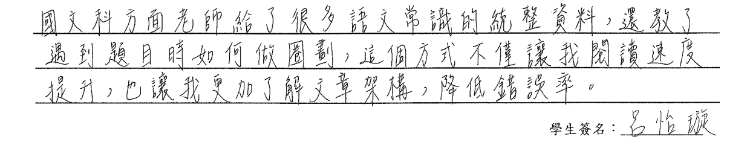 國文科方面老師給了很多語文常識的統整資料，還教了
遇到題目時如何做圈劃，這個方式不僅讓我閱讀速度
提升，也讓我更加了解文章架構，降低錯誤率。
學生簽名：呂怡璇